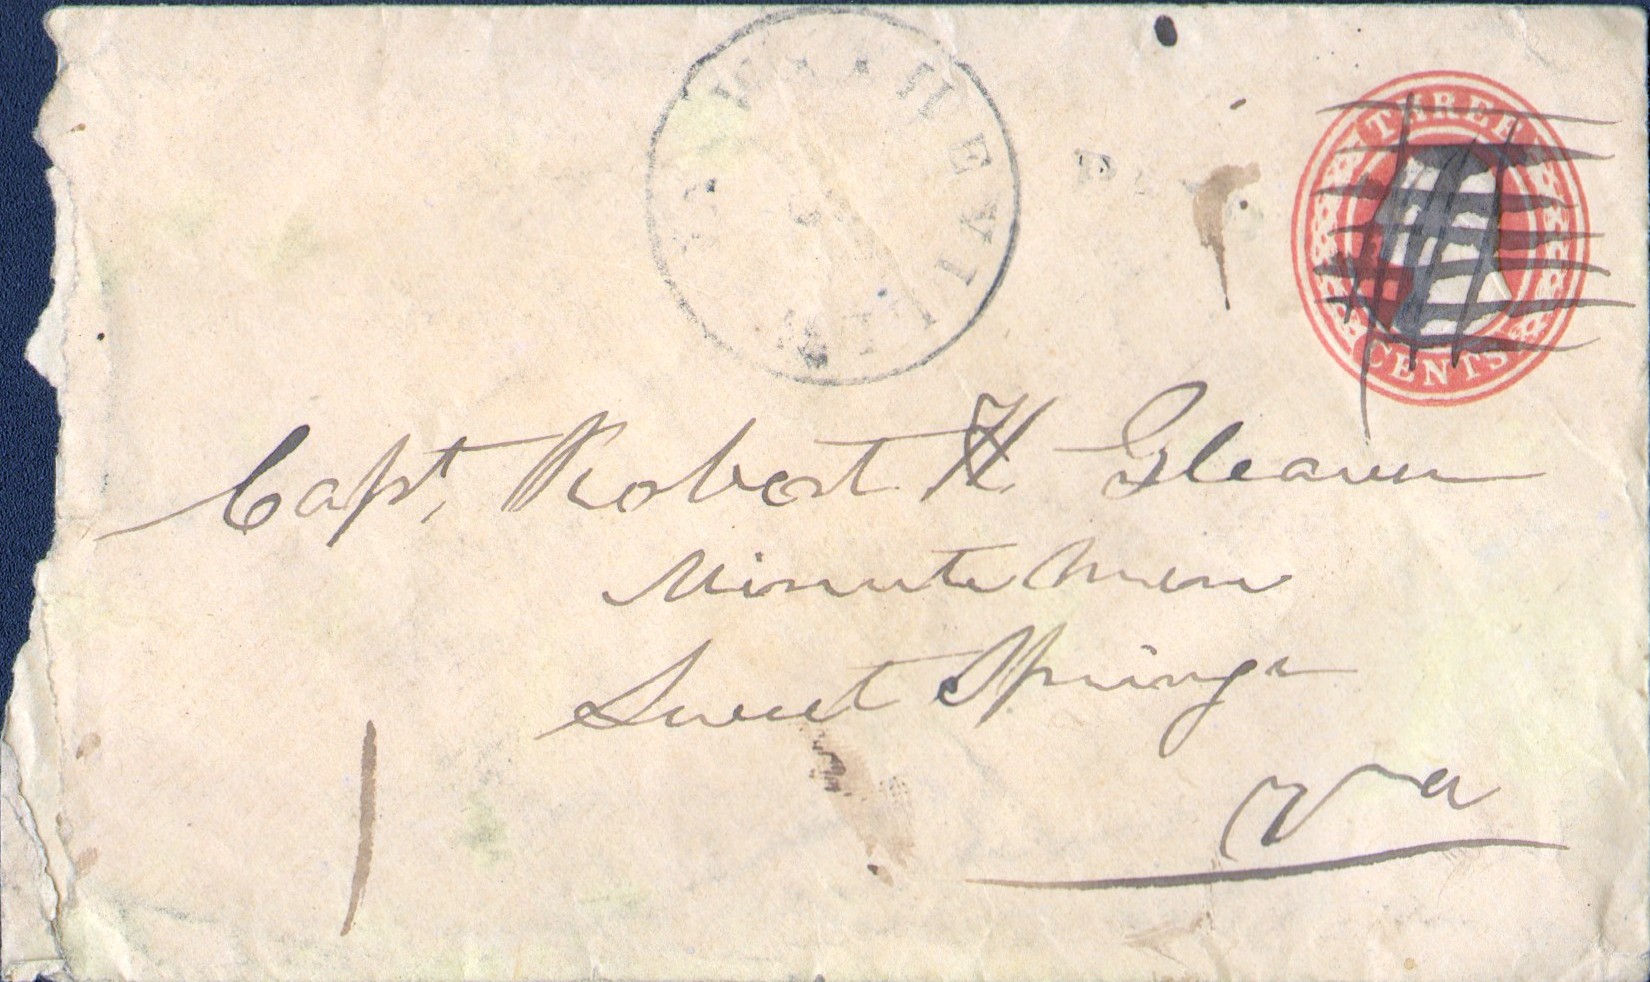 THREE
CENTS
Capt. Robert H. Gleaves
Minute Men
Sweet Springs
Va